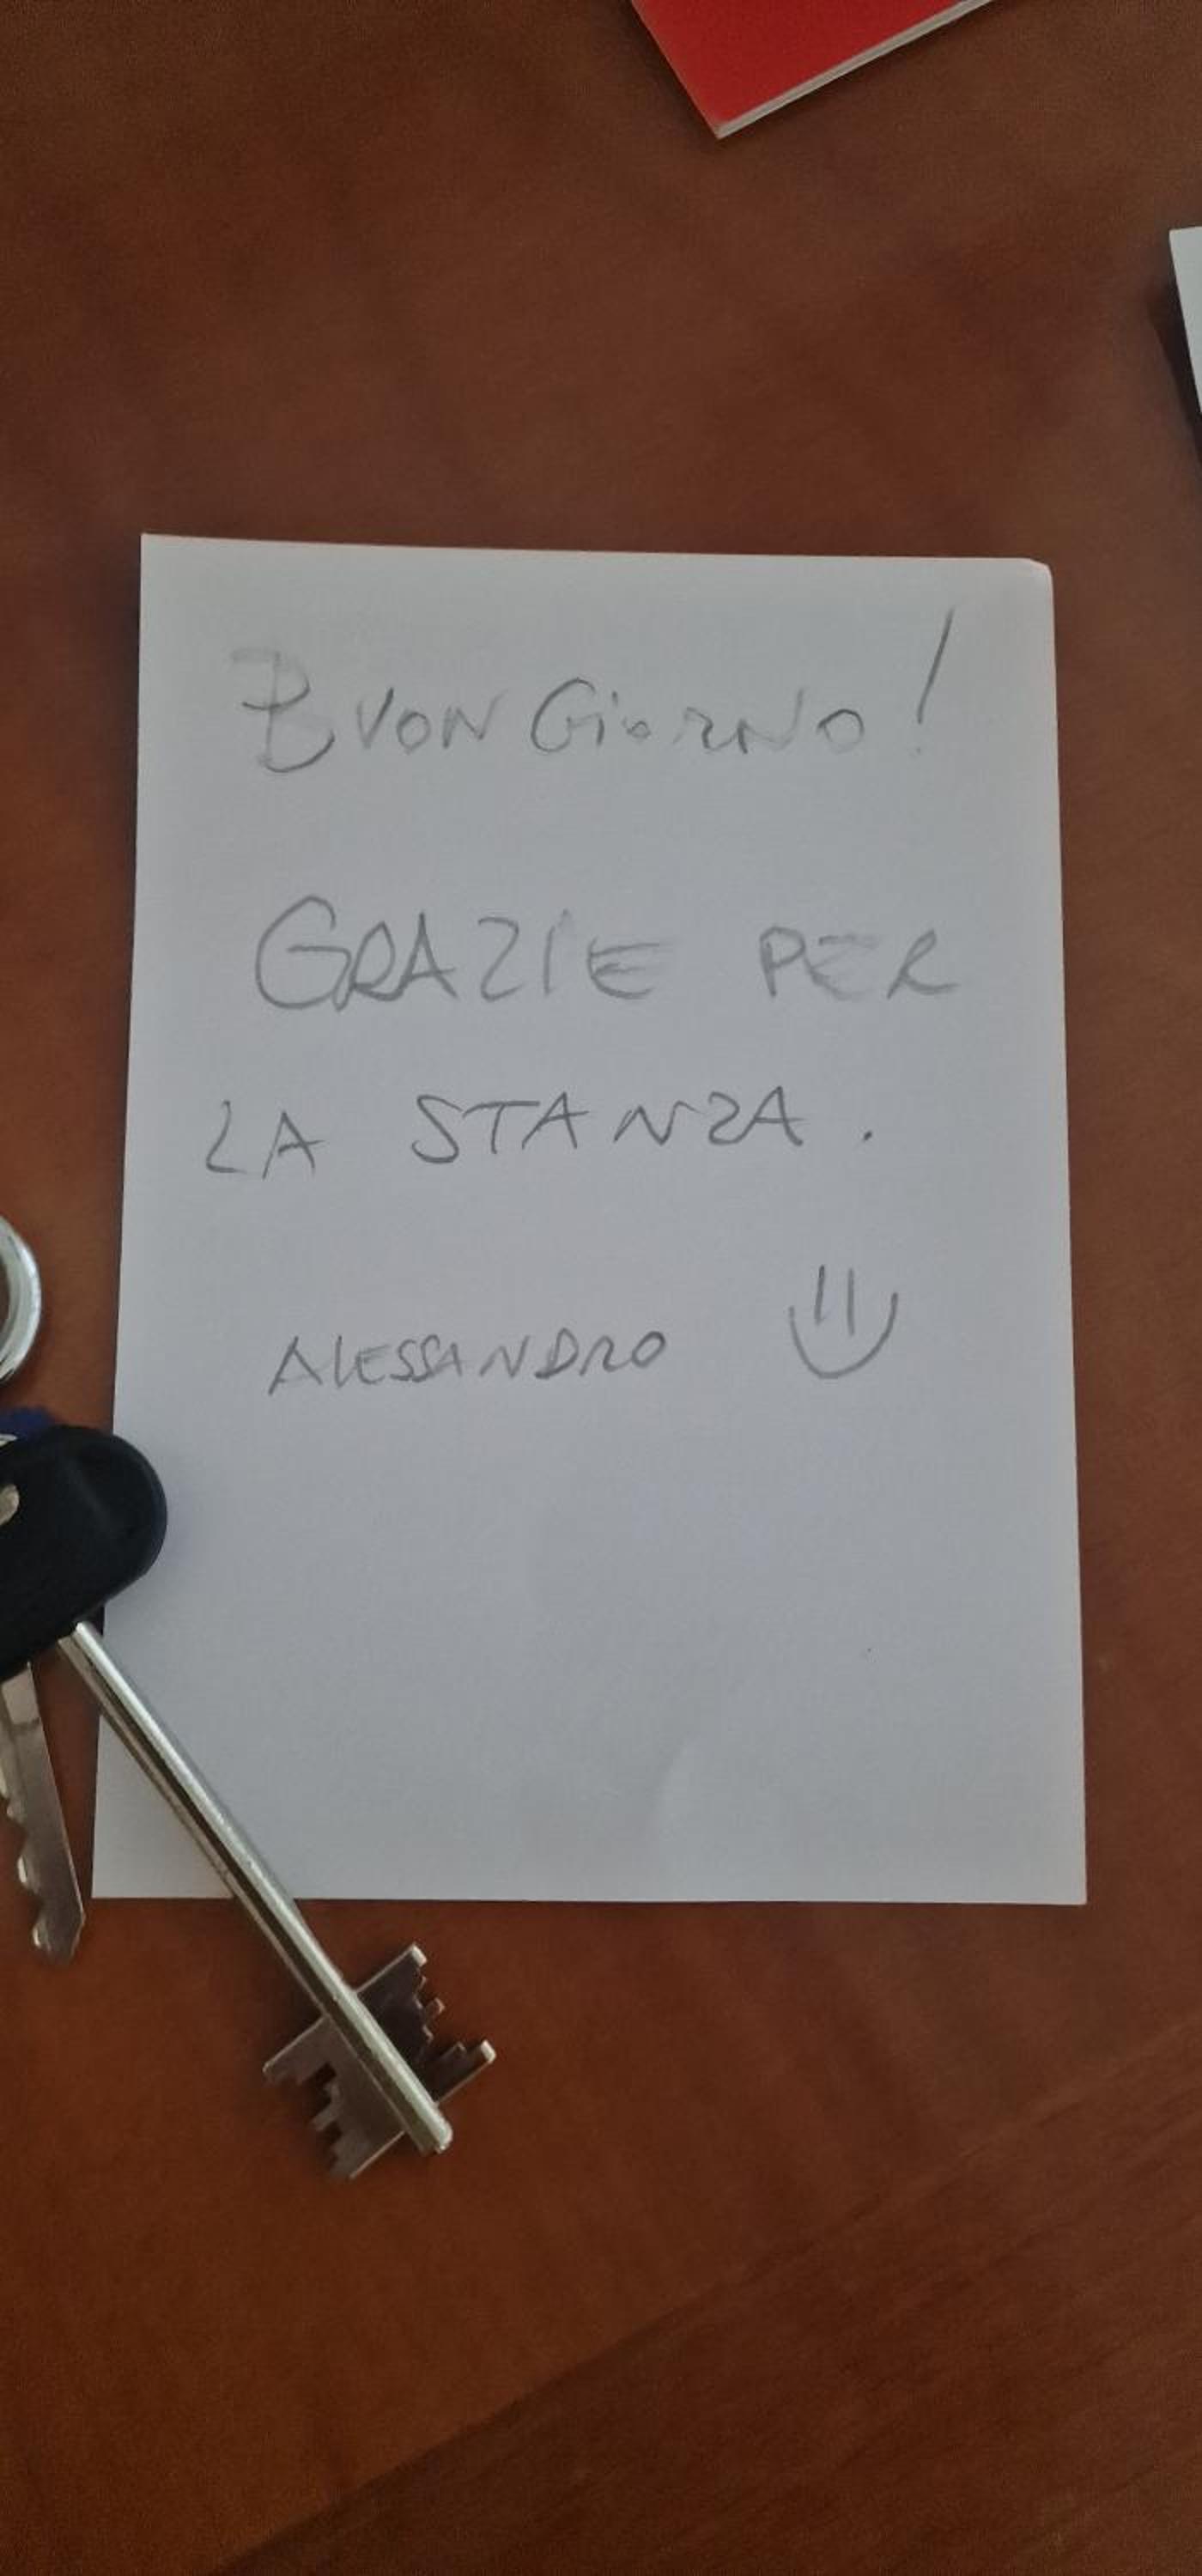 BUON GiORNO!
GRAZIE PER
LA STANZA.
ALESSANDRO